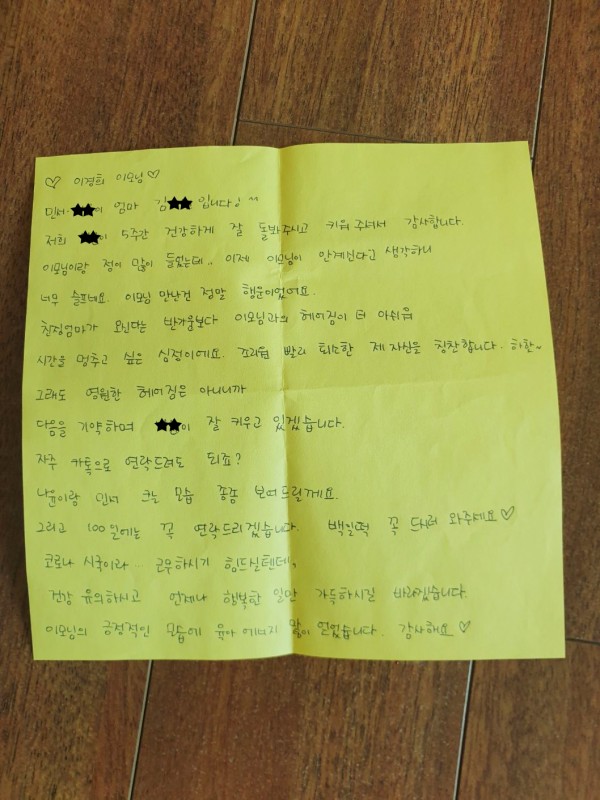 ♡ 이경희 이모님 ♡
민서. ★★이 엄마 김★★ 입니다! ^^
저희 ★★이 5주간 건강하게 잘 돌봐주시고 키워 주셔서 감사합니다.
이모님이랑 정이 많이 들었는데.. 이제 이모님이 안계신다고 생각하니
너무 슬프네요. 이모님 만난건 정말 행운이었어요.
친정엄마가 오신다는 반가움보다 이모님과의 헤어짐이 더 아쉬워
시간을 멈추고 싶은 심정이에요. 조리원 빨리 퇴소한 제 자신을 칭찬합니다. 하핫~
그래도 영원한 헤어짐은 아니니까
다음을 기약하며 ★★이 잘 키우고 있겠습니다.
자주 카톡으로 연락드려도 되죠?
나윤이랑 민서 크는 모습 종종 보여드릴게요.
그리고 100일에는 꼭 연락드리겠습니다. 백일떡 꼭 드시러 와주세요♡
코로나 시국이라... 근무하시기 힘드실텐데,
건강 유의하시고 언제나 행복한 일만 가득하시길 바라겠습니다.
이모님의 긍정적인 모습에 육아 에너지 많이 얻었습니다. 감사해요♡